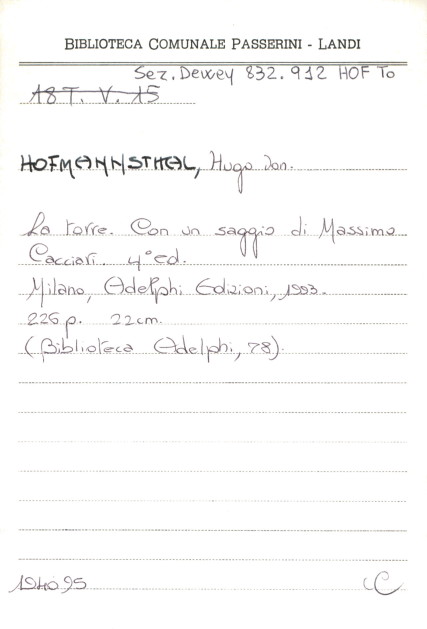 BIBLIOTECA COMUNALE PASSERINI - LANDI
Sez. Dewey 832.912 HOF To
18 T. V. 15
HOFMANNSTHAL, Hugo von.
La torre. Con un saggio di Massimo
Cacciari. 4° ed.
Milano, Adelphi Edizioni, 1993.
226 p. 22cm.
(Biblioteca Adelphi, 78).
194095
C